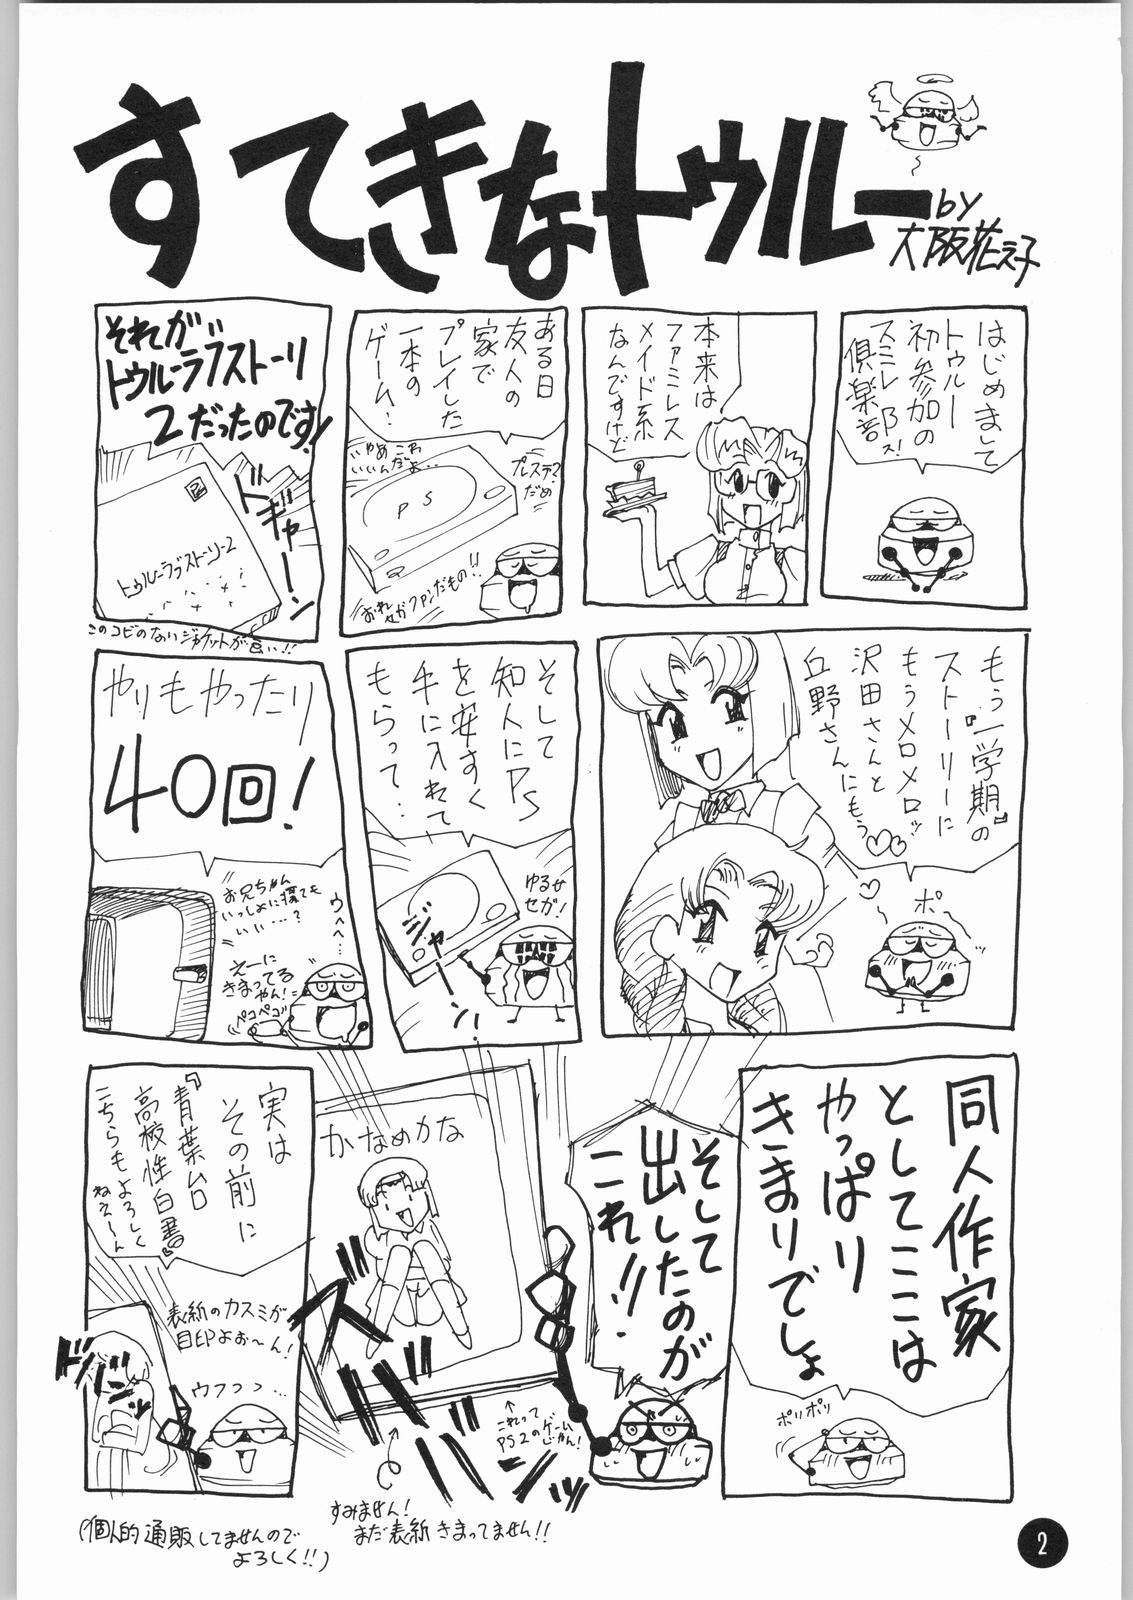 すてきなトゥルー
by
大阪花え子
はじめまして
トゥルー
初参加の
スミレ
倶楽部
本来は
ファミレス
メイド系
なんですけど
ある日
友人の
家で
プレイした
一本の
ゲーム!
プレステ2
だめ
PS
それが
トゥルーラブストーリー
2だったのです!
ドギャーン
トゥルーラブストーリー2
このコピのないジャケットが良い!!
もう『一学期』の
ストーリーに
もうメロメロッ
沢田さんと
丘野さんにもう♡♡
ポッ
そして
知人にPS
を安すく
手に入れて
もらって‥
ゆるせ
セガ!
ジャーン!
やりもやったり
40回!
お兄ちゃん
いっしょに寝ても
いい…?
ウヘヘ…
えーに
きまってる
やん!
ペコペコ
同人作家
としてここは
やっぱり
きまりでしょ
ポリポリ
そして
出したのが
これ!!
かなめかな
ズババンッ
↑
これって
PS2のゲーム
じゃん!
すみません!
まだ表紙きまってません!!
実は
その前に
『青葉ムロ
高校性白書』
こちらもよろしく
ねえーん
表紙のカスミが
目印よお〜ん!
ウフっっ…
(個人的通販してませんので
よろしく!!)
2